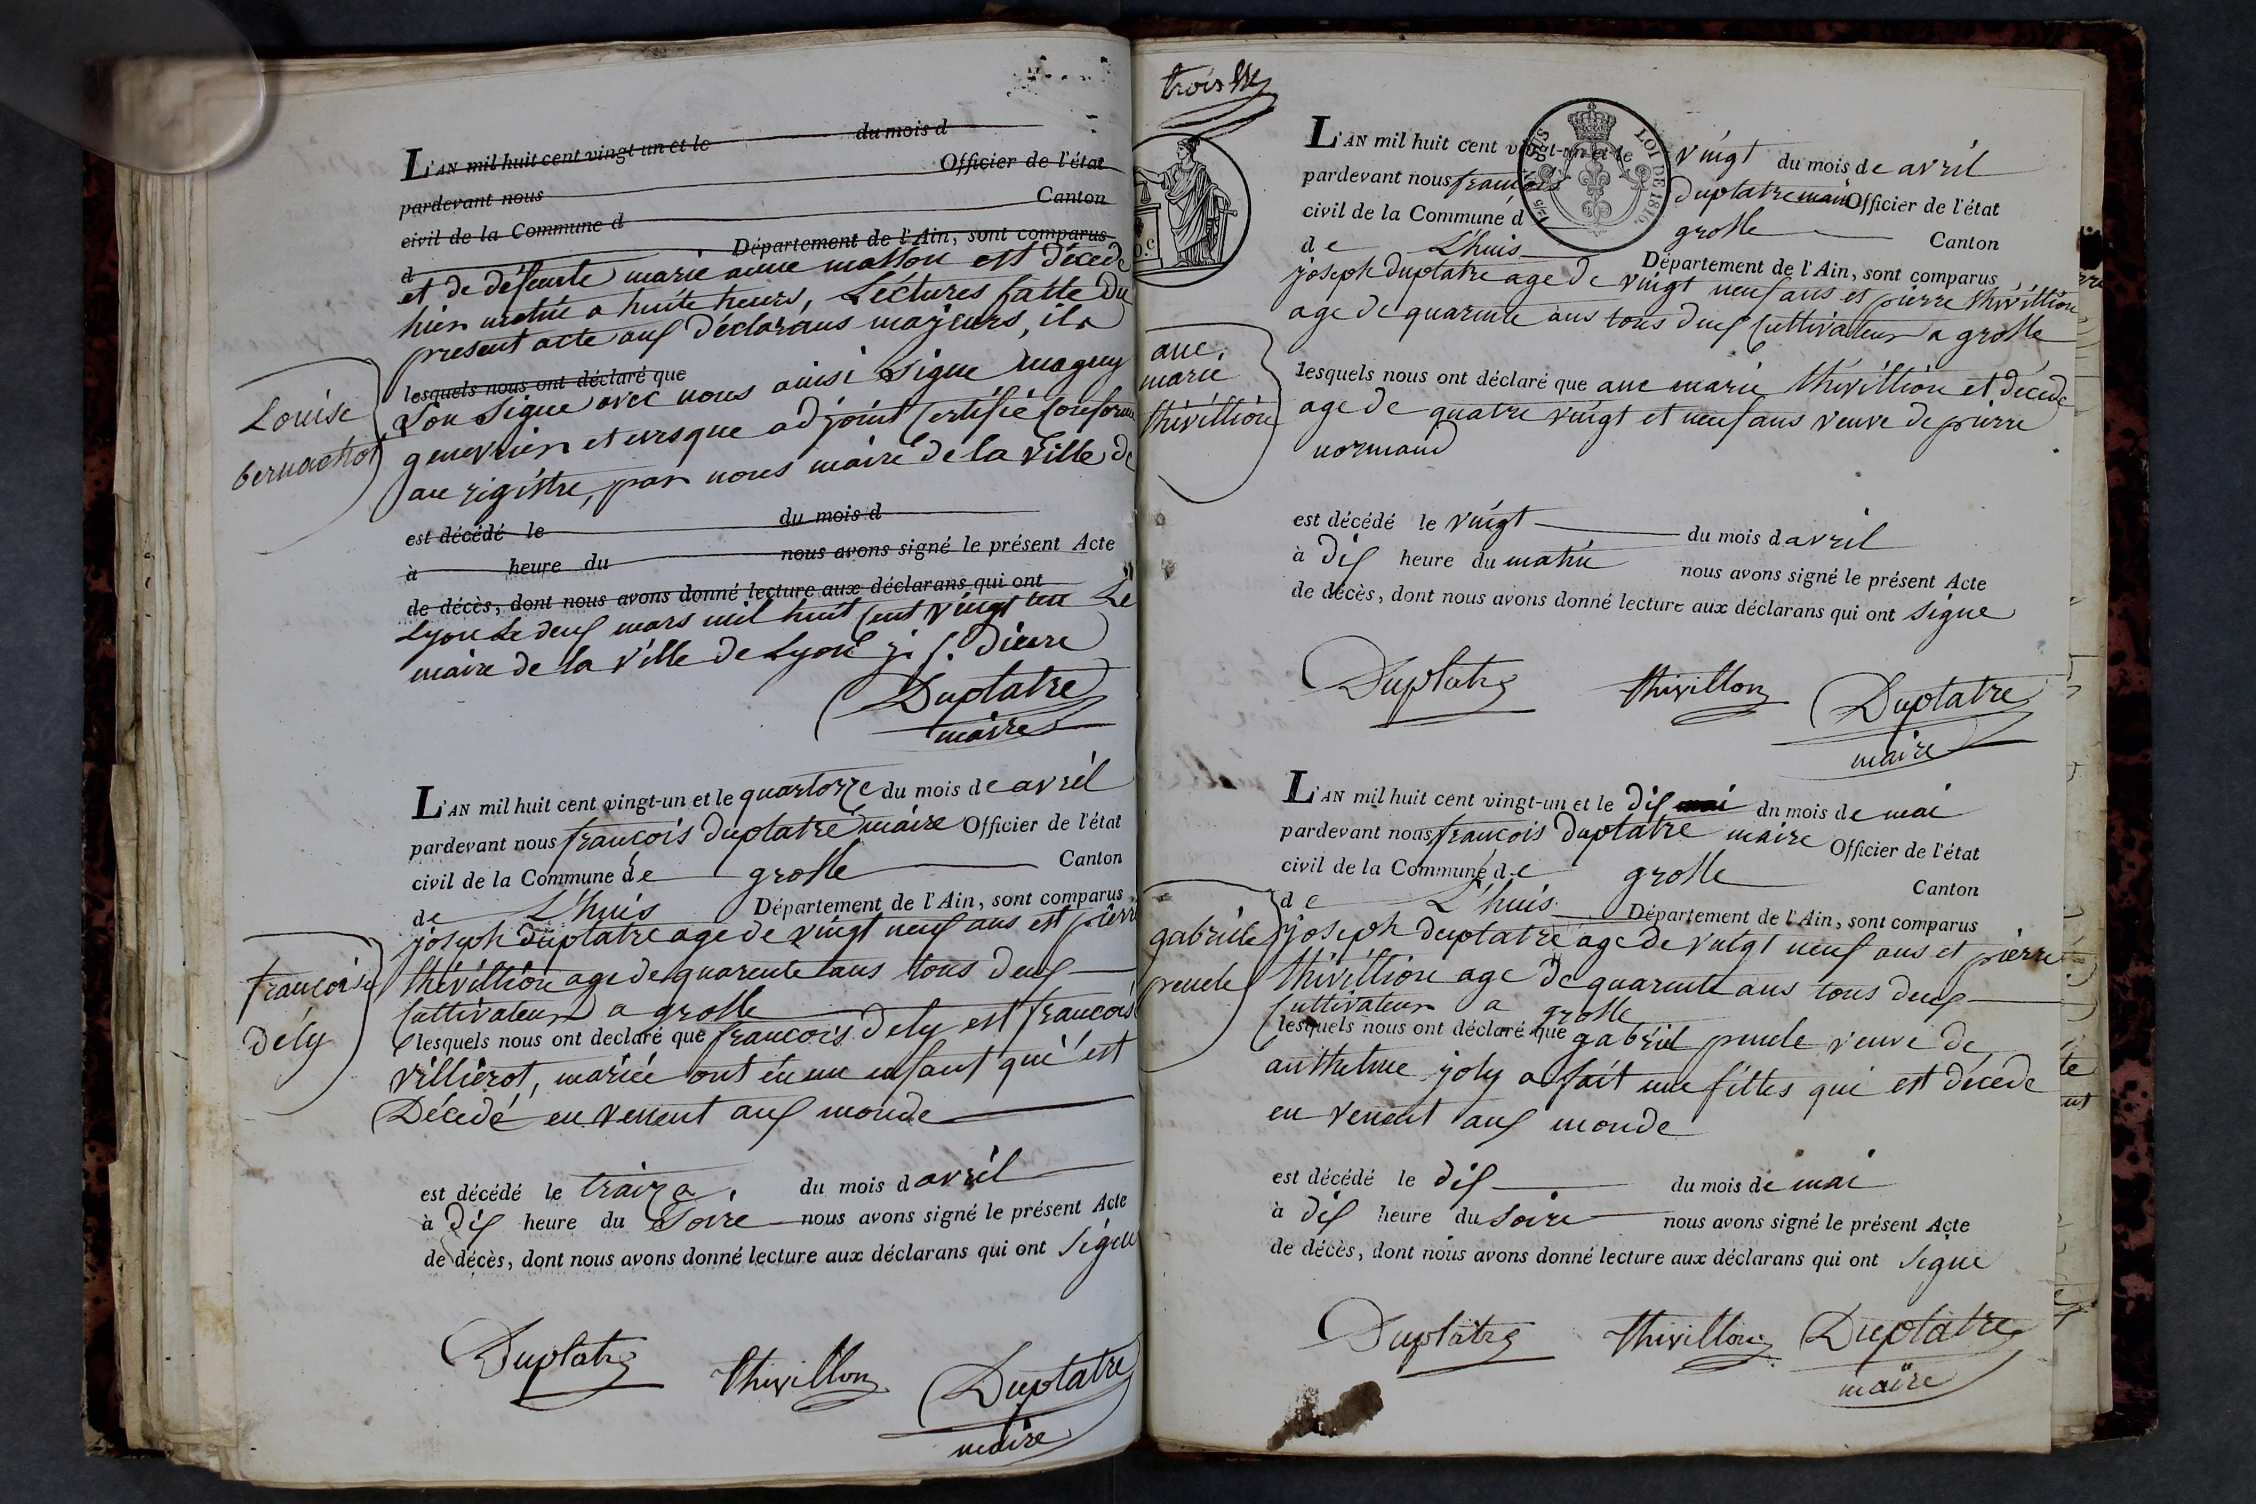 L'AN mil huit cent vingt-un et le du mois d
pardevant nous Officier de l'état
civil de la Commune d Canton
d Département de l'Ain, sont comparus
et de défeunte marie anne masson est décédé
hier matin a huite heurs, Lectures faite du
present acte aux déclarans majeurs, ils
lesquels nous ont déclaré que
Son Signe avec nous ainsi Signe
Louise
bernachot
genevrier et evesque adjoint Certifié Conforme
au rigistre, par nous maire de la Ville de
est décédé le du mois d
à heure du nous avons signé le présent Acte
de décès, dont nous avons donné lecture aux déclarans qui ont
Lyon Le deux mars mil huit Cent vingt un Le
maire de la Ville de Lyon
Duplatre
maire
L'AN mil huit cent vingt-un et le quartorze du mois de avril
pardevant nous francois duplatre maire Officier de l'état
civil de la Commune de grolle Canton
de L'huis Département de l'Ain, sont comparus
joseph duplatre age de vingt neuf ans est pierre
thivillion age de quarente ans tous deux
Cultivateur a grolle
francoise
dély
lesquels nous ont declaré que francois dely est francois
villierot, mariée ont eu un enfant qui est
Décedé en venent aux monde
est décédé le traiza du mois d avril
à dix heure du Soire nous avons signé le présent Acte
de décès, dont nous avons donné lecture aux déclarans qui ont
Duplatre thivillon Duplatre
maire
trois
LOI DE 1816.
L'AN mil huit cent vingt-un et le vingt du mois de avril
pardevant nous francois duplatre maire Officier de l'état
civil de la Commune d grolle Canton
de L'huis Département de l'Ain, sont comparus
joseph duplatre age de vingt neuf ans et pierre thivillion
age de quarente ans tous deux Cultivateur a grolle
ane
marie
thivillion
lesquels nous ont déclaré que ane marie thivillion et décede
age de quatre vingt et neuf ans veuve de pierre
normand
est décédé le vingt du mois d avril
à dix heure du matin nous avons signé le présent Acte
de décès, dont nous avons donné lecture aux déclarans qui ont signe
Duplatre thivillon Duplatre
maire
L'AN mil huit cent vingt-un et le dix mai du mois de mai
pardevant nous francois duplatre maire Officier de l'état
civil de la Commune de grolle Canton
de L'huis Département de l'Ain, sont comparus
gabriele
joseph duplatre age de vuigt neuf ans et pierre
thivillion age de quarente ans tous deux
Cultivateur a grolle
lesquels nous ont déclaré que gabriel veuve de
anthelme joly a fait une filles qui est décede
en venent aux monde
est décédé le dix du mois de mai
à dix heure du soire nous avons signé le présent Acte
de décès, dont nous avons donné lecture aux déclarans qui ont signe
Duplatre thivillon Duplatre
maire